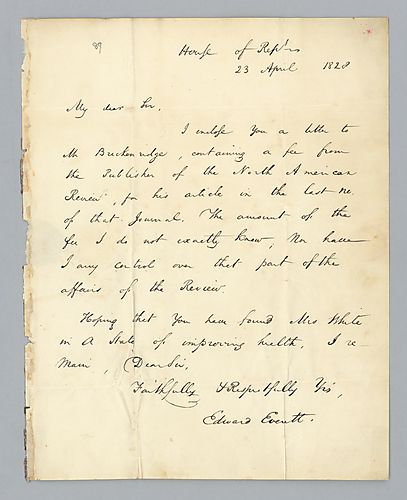 89
House of Repᵗˢ
23 April 1828
My dear Sir,
I enclose you a letter to
Mr Breckenridge, containing a fee from
the Publisher of the North American
Review, for his article in the last no.
of that Journal. The amount of the
fee I do not exactly know, nor have
I any control over that part of the
affairs of the Review.
Hoping that you have found Mrs White
in a state of improving health, I re-
main, Dear Sir,
Faithfully & Respectfully Yrs,
Edward Everett.